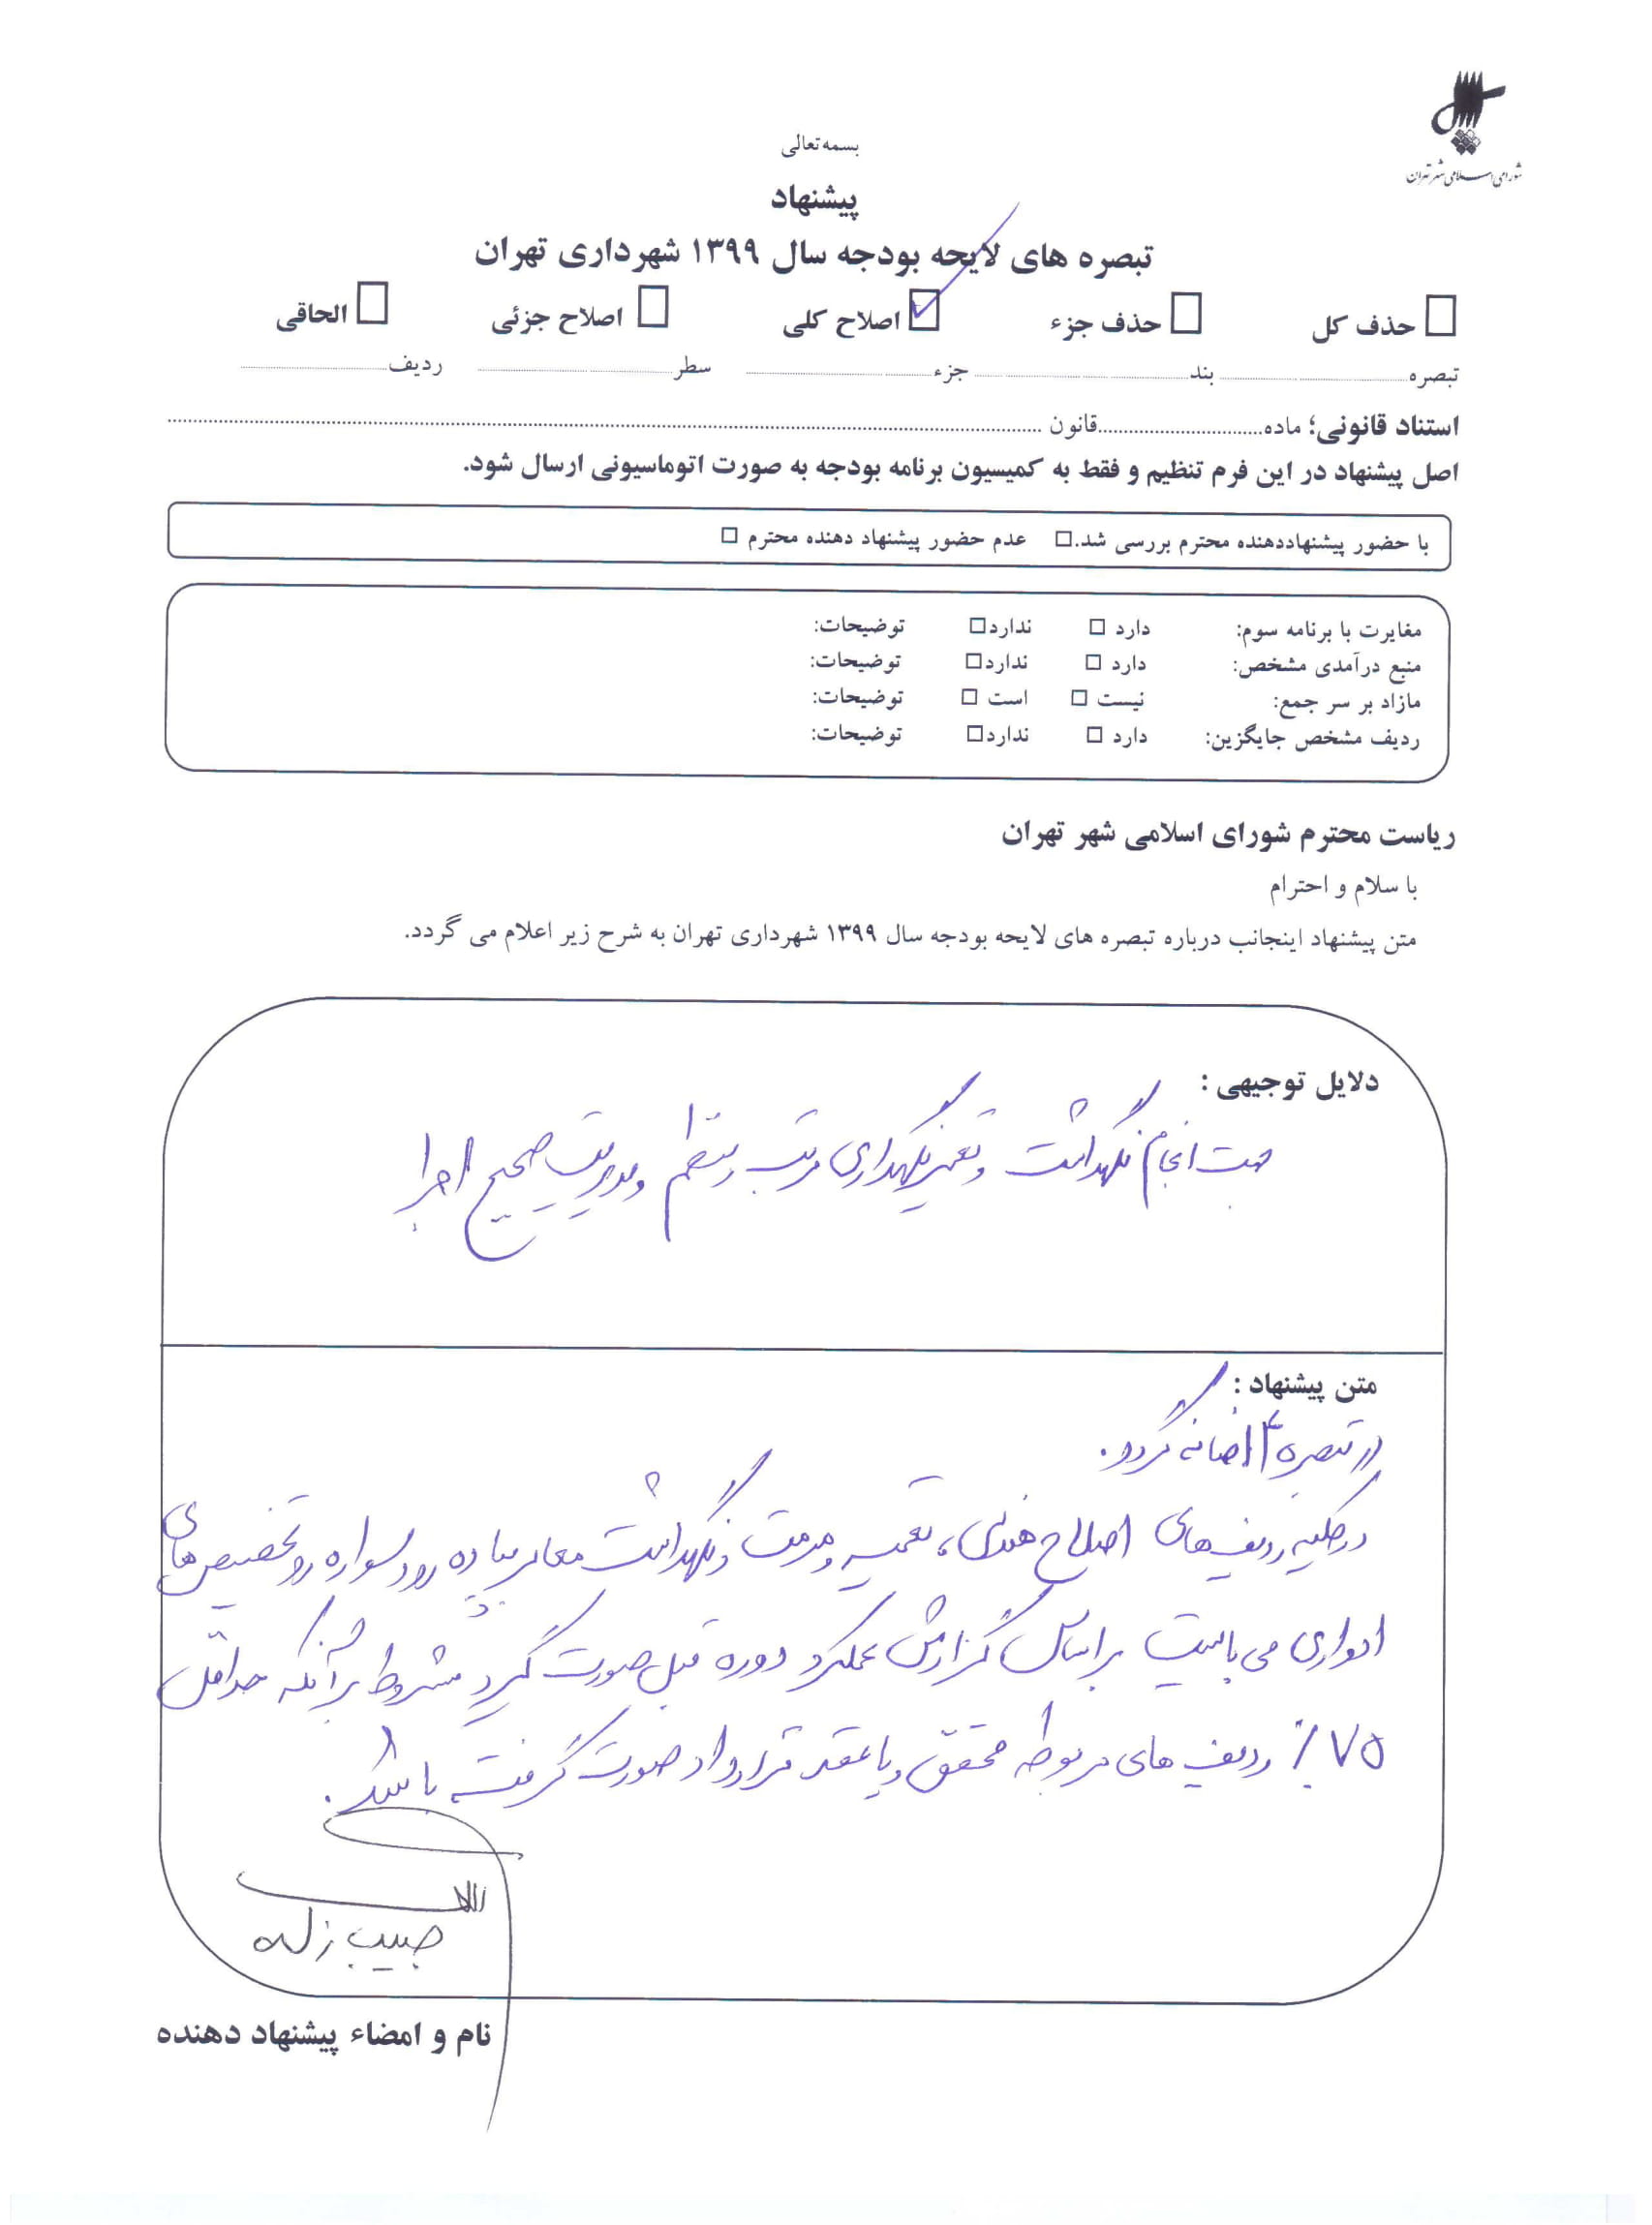 شورای اسلامی شهر تهران
بسمه تعالی
پیشنهاد
تبصره های لایحه بودجه سال ۱۳۹۹ شهرداری تهران
حذف کل حذف جزء اصلاح کلی اصلاح جزئی الحاقی
تبصره بند جزء سطر ردیف
استناد قانونی؛ ماده قانون
اصل پیشنهاد در این فرم تنظیم و فقط به کمیسیون برنامه بودجه به صورت اتوماسیونی ارسال شود.
با حضور پیشنهاددهنده محترم بررسی شد. عدم حضور پیشنهاد دهنده محترم
مغایرت با برنامه سوم: دارد ندارد توضیحات:
منبع درآمدی مشخص: دارد ندارد توضیحات:
مازاد بر سر جمع: نیست است توضیحات:
ردیف مشخص جایگزین: دارد ندارد توضیحات:
ریاست محترم شورای اسلامی شهر تهران
با سلام و احترام
متن پیشنهاد اینجانب درباره تبصره های لایحه بودجه سال ۱۳۹۹ شهرداری تهران به شرح زیر اعلام می گردد.
دلایل توجیهی :
جهت انجام نگهداشت و تعمیر نگهداری مرتب و منظم و مدیریت صحیح اجرا
متن پیشنهاد :
در تبصره ۴ اضافه گردد.
در کلیه ردیف های اصلاح هندسی، تعمیر و مرمت و نگهداشت معابر پیاده رو و سواره رو تخصیص های
ادواری می بایست بر اساس گزارش عملکرد دوره قبل صورت گیرد مشروط بر آنکه حداقل
۷۵٪ ردیف های مربوطه محقق و یا عقد قرارداد صورت گرفته باشد.
حبیب زاده
نام و امضاء پیشنهاد دهنده